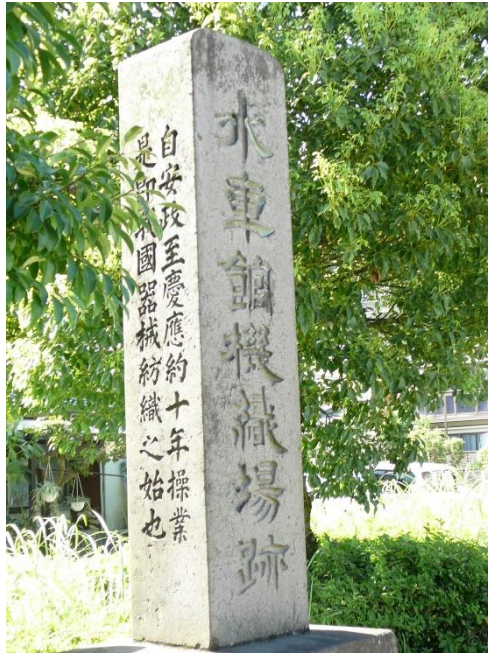 水車館機織場跡
自安政至慶應約十年操業
是即我國器械紡織之始也